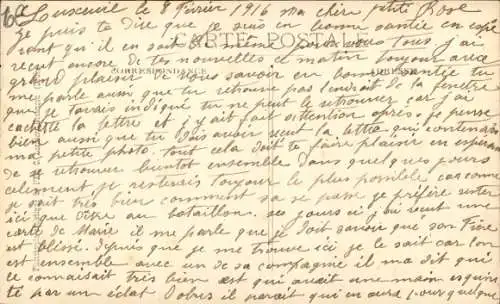 Luxeuil le 8 Février 1916 ma chère petite Rose
Je puis te dire que je suis en bonne santée en espe
rant qu'il en soit de même pour vous tous j'ai
CARTE POSTALE
recut encore de tes nouvelles ce matin toujour avec
grand plaisir de vous savoir en bonne santée tu
CORRESPONDANCE
me parle aussi que tu retrouve pas l'endroit de la fenetre
que je t'avais indiqué tu ne peut le retrouver car j'ai
cachetté la lettre et j'y ait fait attention après. je pense
bien aussi que tu dois avoir recut la lettre qui contenait
ma petite photo. tout cela doit te faire plaisir en esperant
de se retrouver bientot ensemble dans quelques jours
celement je resterais toujour le plus possible car comme
je sait très bien comment sa se passe je préfère rester
ici que d'être au bataillon. ses jours ici j'ai recut une
carte de Marie il me parle que je doit savoir que son Frère
est blessé. depuis que je me trouve ici je le sait car l'on
est ensemble avec un de sa compagnie il m'a dit qu'il
le connaisait très bien est qui avait une main esquin
té par un éclat d'obres il parait qui en aura pour quelque